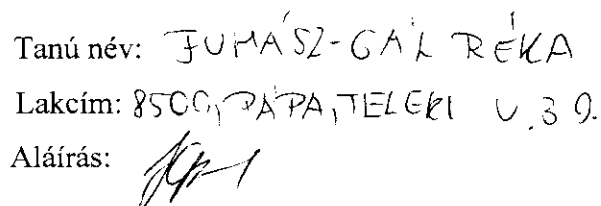 Tanú név: JUHÁSZ-GÁL RÉKA
Lakcím: 8500, PÁPA, TELEKI U. 39.
Aláírás: